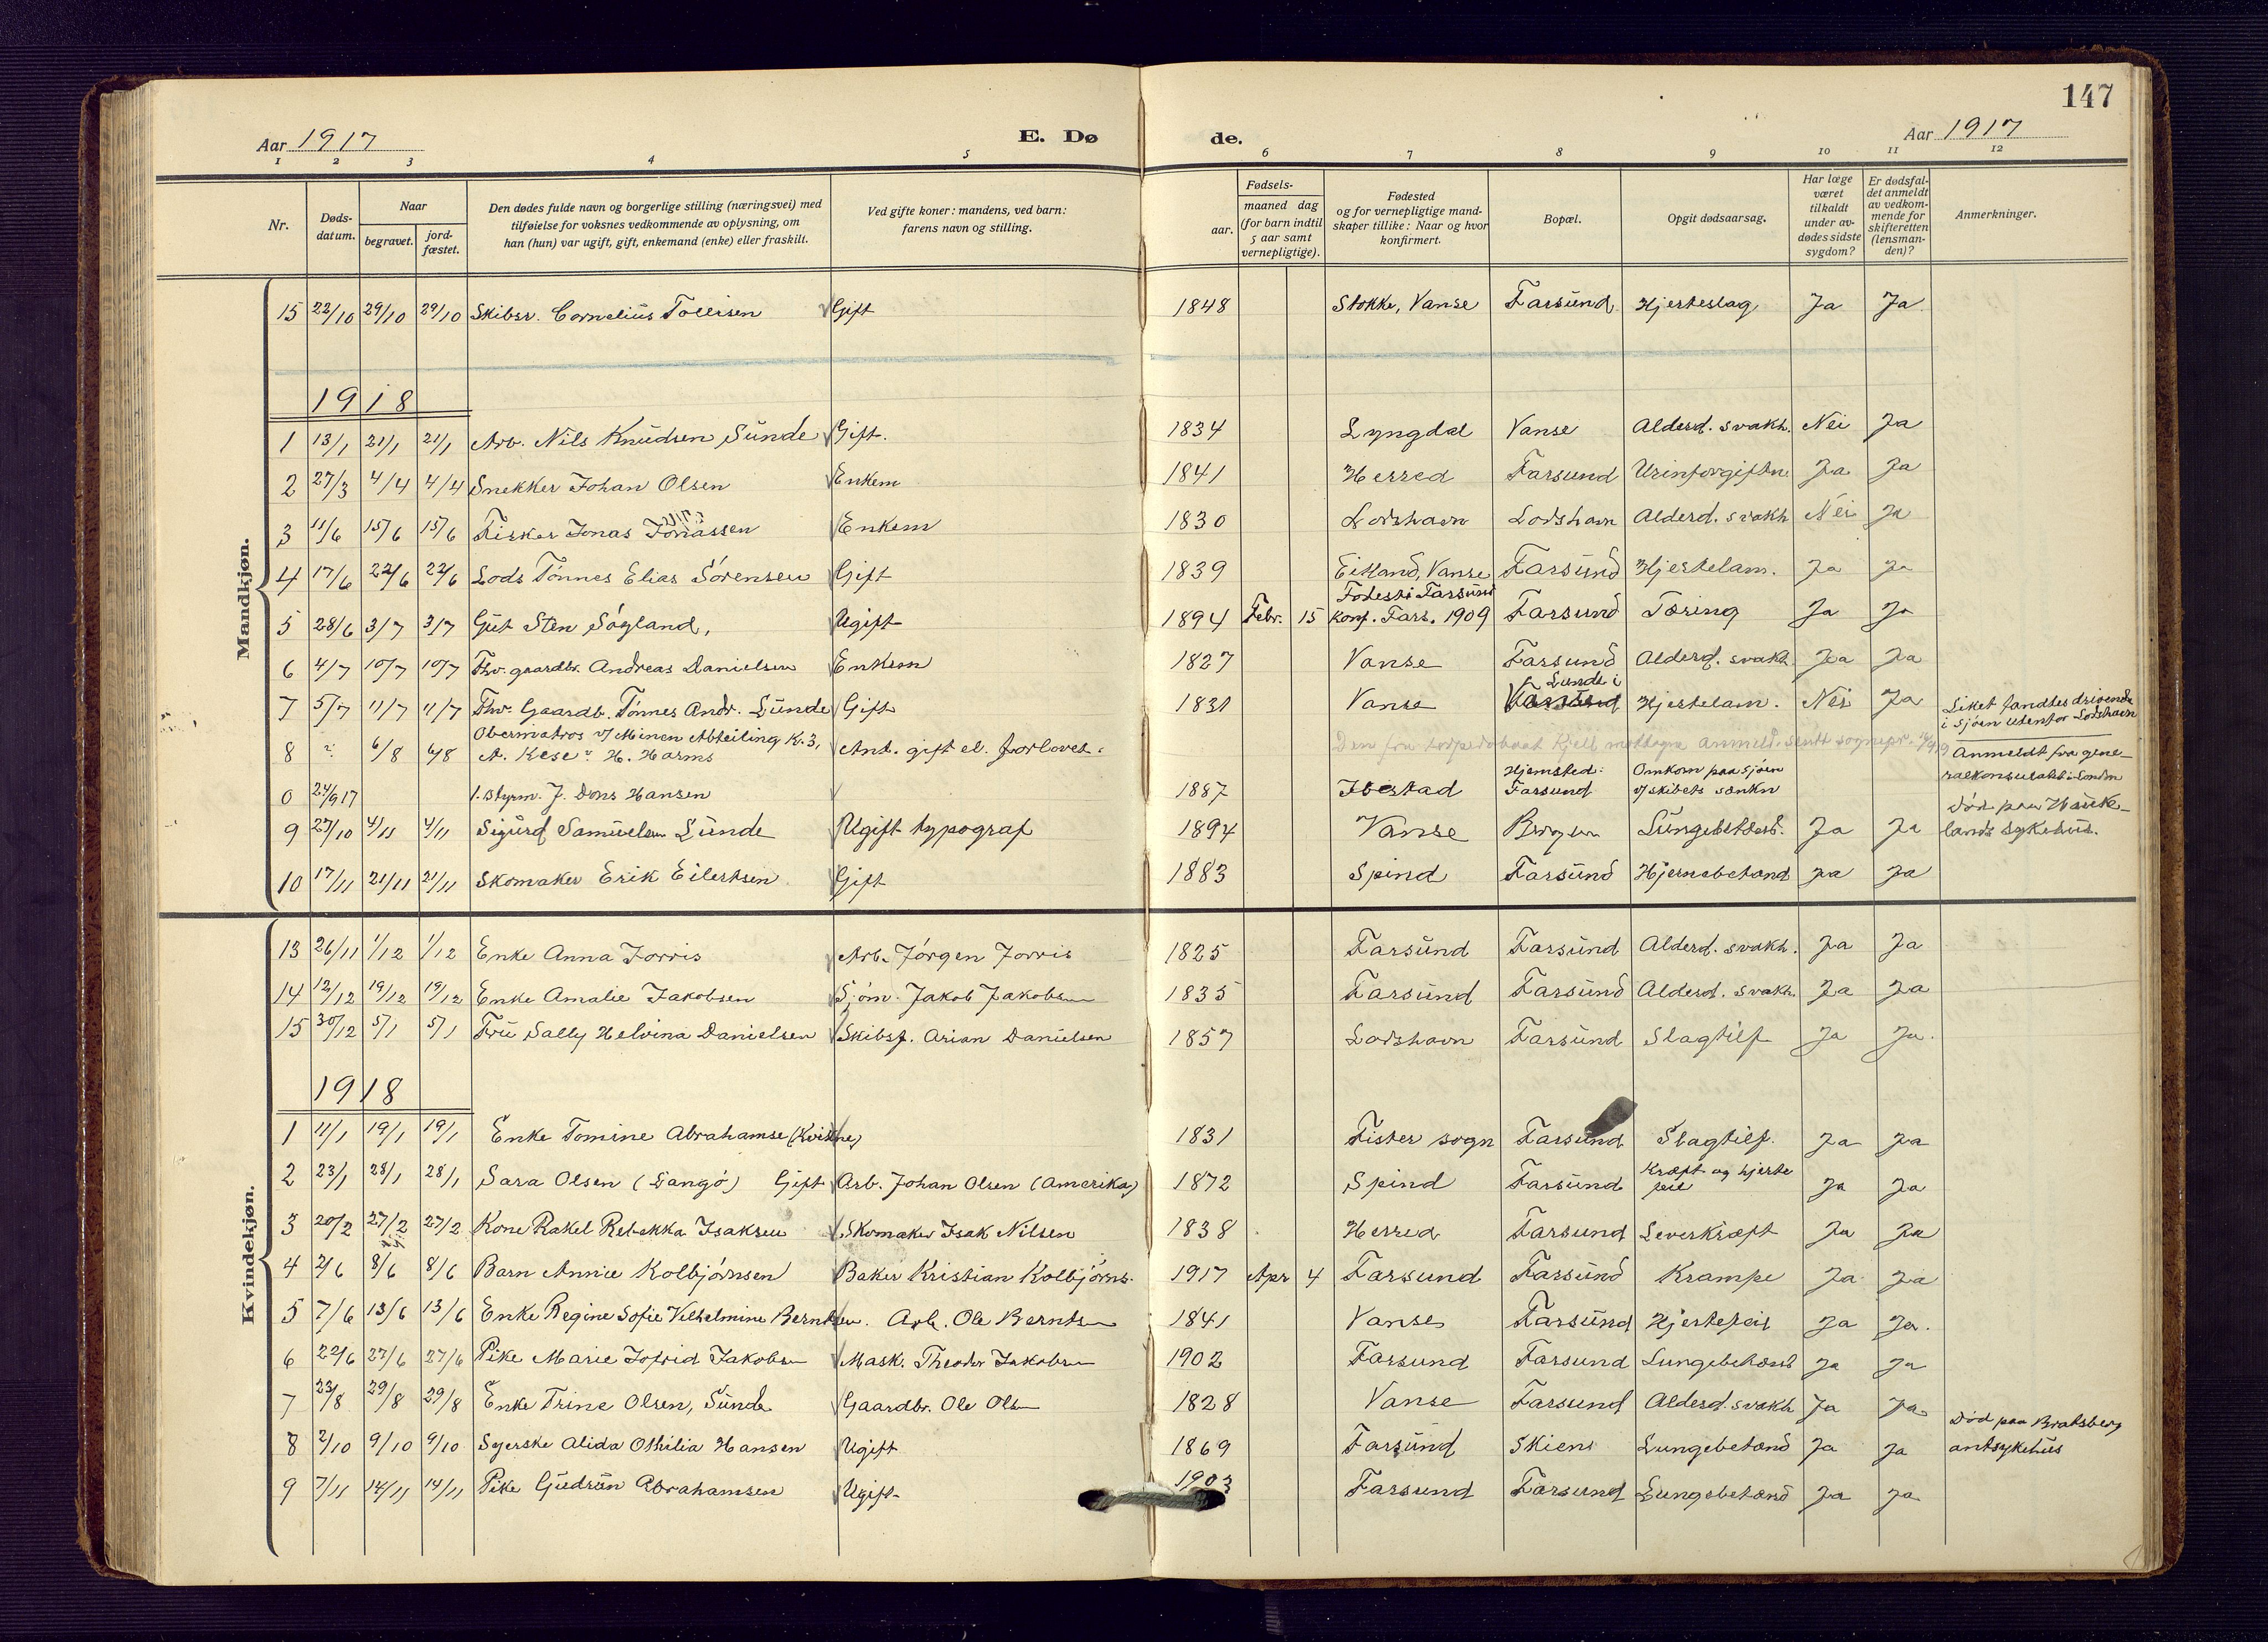 147
Aar 1917
E. Dø
de.
Aar 1917
1 2 3 4 5 6 7 8 9 10 11 12
Nr.
Døds-
datum.
Naar
begravet.
jord-
fæstet.
Den dødes fulde navn og borgerlige stilling (næringsvei) med
tilføielse for voksnes vedkommende av oplysning, om
han (hun) var ugift, gift, enkemand (enke) eller fraskilt.
Ved gifte koner: mandens, ved barn:
farens navn og stilling.
Fødsels-
aar.
maaned dag
(for barn indtil
5 aar samt
vernepligtige).
Fødested
og for vernepligtige mand-
skaper tillike: Naar og hvor
konfirmert.
Bopæl.
Opgit dødsaarsag.
Har læge
været
tilkaldt
under av-
dødes sidste
sygdom?
Er dødsfal-
det anmeldt
av vedkom-
mende for
skifteretten
(lensman-
den)?
Anmerkninger.
Mandkjøn.
15 22/10 29/10 29/10 Skibsr. Cornelius Tollisen Gift 1848 Stokke, Vanse Farsund Hjerteslag Ja Ja
1918
1 13/1 21/1 21/1 Arb. Nils Knudsen Sunde Gift. 1834 Lyngdal Vanse Alderd. svakh. Nei Ja
2 27/3 4/4 4/4 Snekker Johan Olsen Enkem 1841 Herred Farsund Urinforgiftn. Ja Ja
3 11/6 15/6 15/6 Fisker Jonas Jonassen Enkem 1830 Lodshavn Lodshavn Alderd. svakh Nei Ja
4 17/6 22/6 22/6 Lods Tönnes Elias Sörensen Gift 1839 Eitland, Vanse Farsund Hjertelam. Ja Ja
Fodest i Farsund
5 28/6 3/7 3/7 Gut Sten Sögland, Ugift 1894 Febr. 15 konf. Fars. 1909 Farsund Tæring Ja Ja
6 4/7 10/7 10/7 Fhv. gaardbr. Andreas Danielsen Enkem 1827 Vanse Farsund Alderd. svakh. Ja Ja
Lunde i
7 5/7 11/7 11/7 Fhv. Gaardb. Tönnes Andr. Lunde Gift 1831 Vanse Hjertelam. Nei Ja
Liket fandtes drivende
i sjöen utenfor Lodshavn
Obermatros v/ Minen Abteiling K. 3,
8 6/8 6/8 A. Kese H. Harms Ant. gift el. forlovet. Den fra torpedobaat Kjell mottagne anmeld. sendt sognepr.
Anmeldt fra gene-
ralkonsulatet i London
0 24/9 17 1. styrm. J. Dons Hansen 1887 Ibestad
Hjemsted:
Farsund
Omkom paa sjöen
v/ skibets sænkn
9 27/10 4/11 4/11 Sigurd Samuelsen Lunde Ugift typograf 1894 Vanse Bergen Lungebetænd. Ja Ja
död paa Hauke-
lands sykehus.
10 17/11 21/11 21/11 Skomaker Erik Eilertsen Gift 1883 Spind Farsund Hjernebetænd Ja Ja
Kvindekjøn.
13 26/11 1/12 1/12 Enke Anna Jorris Arb. Jörgen Jorris 1825 Farsund Farsund Alderd. svakh. Ja Ja
14 12/12 19/12 19/12 Enke Amalie Jakobsen Sjöm. Jakob Jakobsen 1835 Farsund Farsund Alderd. svakh. Ja Ja
15 30/12 5/1 5/1 Fru Sally Helvina Danielsen Skibsf. Arian Danielsen 1857 Lodshavn Farsund Slagtilf Ja Ja.
1918
1 11/1 19/1 19/1 Enke Tomine Abrahamse (Kvikne) 1831 Fister sogn Farsund Slagtilf. Ja Ja
2 23/1 28/1 28/1 Sara Olsen (Gangö) Gift Arb. Johan Olsen (Amerika) 1872 Spind Farsund Kræft og hjerte
feil Ja Ja
3 20/2 27/2 27/2 Kone Rakel Rebekka Isaksen Skomaker Isak Nilsen 1838 Herred Farsund Leverkræft Ja Ja
4 2/6 8/6 8/6 Barn Annie Kolbjörnsen Baker Kristian Kolbjörns. 1917 Apr 4 Farsund Farsund Krampe Ja Ja
5 7/6 13/6 13/6 Enke Regine Sofie Vilhelmine Berntsen. Arb. Ole Berntsen 1841 Vanse Farsund Hjertefeil Ja Ja.
6 22/6 27/6 27/6 Pike Marie Jofrid Jakobsen Mask. Theodor Jakobsen 1902 Farsund Farsund Lungebetænd Ja Ja
7 23/8 29/8 29/8 Enke Trine Olsen, Sunde Gaardbr. Ole Olsen 1828 Vanse Farsund Alderd. svakh Ja Ja
8 2/10 9/10 9/10 Syerske Alida Othilia Hansen Ugift 1869 Farsund Skien Lungebetænd Ja Ja
Död paa Bratsberg
amtsykehus
9 7/11 14/11 14/11 Pike Gudrun Abrahamsen Ugift 1903 Farsund Farsund Lungebetænd Ja Ja